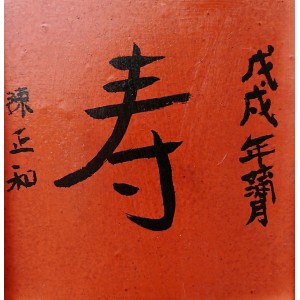 戊戌年蒲月
寿
陳正和